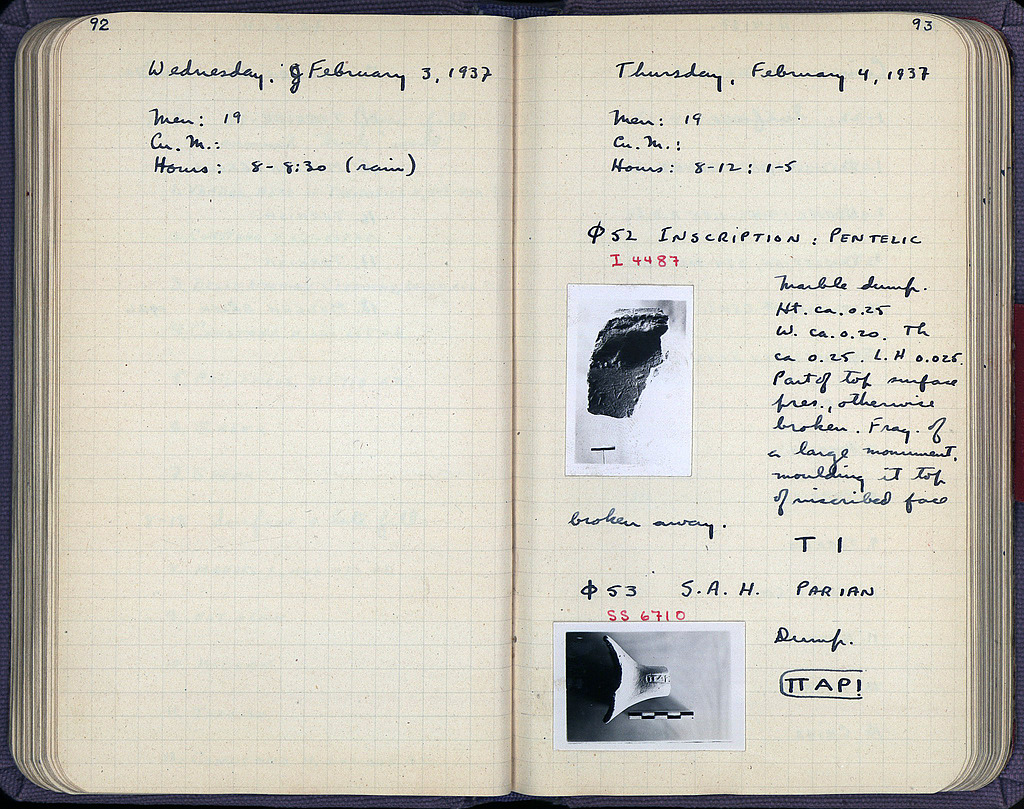 92
Wednesday, February 3, 1937
Men: 19
Cu. M.:
Hours: 8-8:30 (rain)
93
Thursday, February 4, 1937
Men: 19
Cu. M.:
Hours: 8-12; 1-5
Φ 52 INSCRIPTION: PENTELIC
I 4487
Marble dump.
Ht. ca. 0.25
W. ca. 0.20. Th
ca 0.25. L.H 0.025.
Part of top surface
pres., otherwise
broken. Frag. of
a large monument,
moulding at top
of inscribed face
broken away.
Τ Ι
Φ 53 S.A.H. PARIAN
SS 6710
Dump.
ΠΑΡΙ